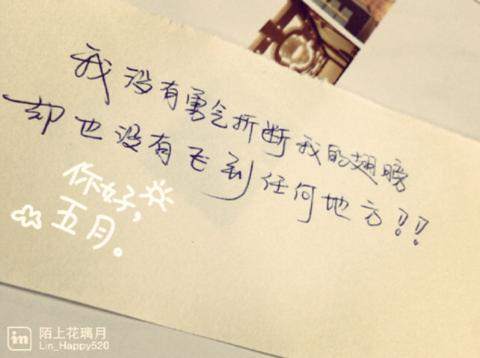 我没有勇气折断我的翅膀
却也没有飞到任何地方!!
你好,
五月。
in
陌上花璃月
Lin_Happy520